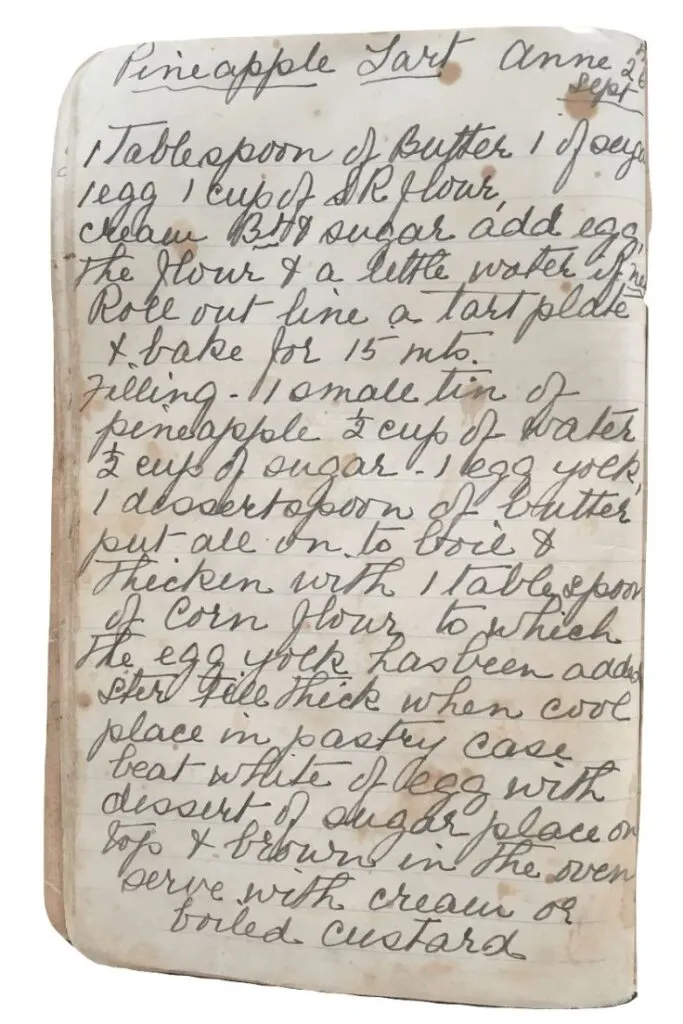 Pineapple Tart Anne
Sept
1 Tablespoon of Butter 1 of suga
1 egg 1 cup of S R flour,
cream But & sugar add egg,
the flour & a little water if ne
Roll out line a tart plate
& bake for 15 mts.
Filling - 1 small tin of
pineapple ½ cup of water
½ cup of sugar - 1 egg yolk,
1 dessertspoon of butter
put all on to boil &
thicken with 1 tablespoon
of Corn flour to which
the egg yolk has been added
ster till thick when cool
place in pastry case
beat white of egg with
dessert of sugar place on
top & brown in the oven
serve with cream or
boiled custard